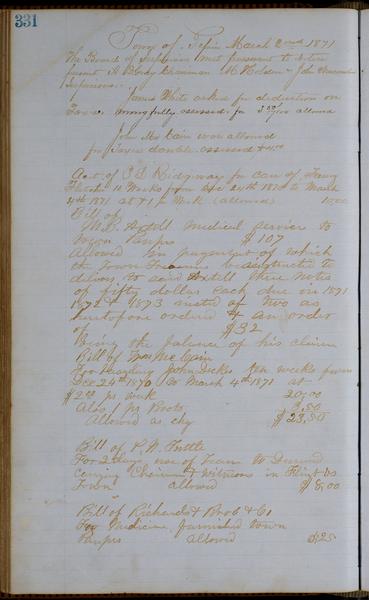 331
Town of Pepin March 2nd 1871
The Board of Supervisors met pursuant to notice
present A Chairman M Holden & John
Supervisors.
James White asked for deduction on
Taxes wrongfully assessed for allowed
John Mc Cain was allowed
for Taxes double assessed
Act. of Ridgway for care of Fanny
Fletcher 10 Weeks from Dec 24th 1870 to March
4th 1871 at $1 pr Week (allowed) 10.00
Bill of
M.D. Axtell Medical service to
Town Paupers $107
Allowed in payment of which
the Town Treasurer is instructed to
deliver to said Axtell three Notes
of fifty dollars each due in 1871
1872 & 1873 insted of two as
heretofore ordered & an order
of $32
Being the balance of his claim
Bill of Wm McCain
For keeping John Dicks ten weeks from
Dec 24th 1870 to March 4th 1871 at
$2.00 pr week 20,00
Also pr Boots 3,50
Allowed as chg $23,50
Bill of P. W. Tuttle
For 2 days use of Team
Conveying Chairman & Witness in
Town allowed $8,00
Bill of Richards & Bro & Co
For Medicine furnished Town
Paupers allowed